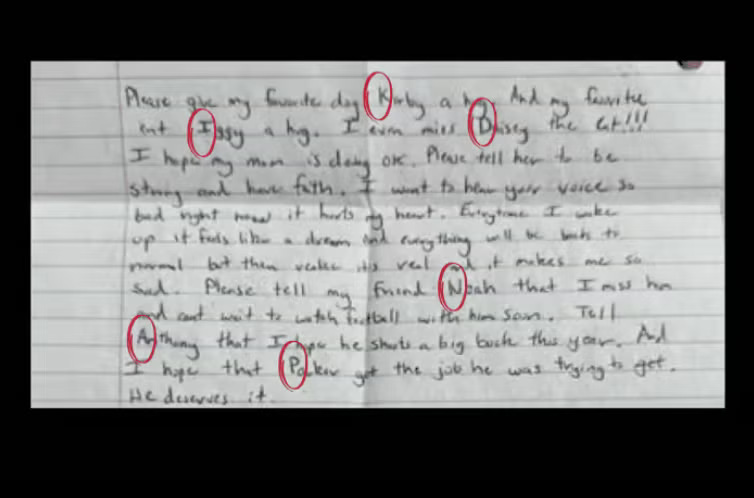 Please give my favorite dog Kirby a hug. And my favorite
cat Iggy a hug. I even miss Daisey the cat!!!
I hope my mom is doing ok. Please tell her to be
strong and have faith. I want to hear your voice so
bad right now it hurts my heart. Everytime I wake
up it feels like a dream and everything will be back to
normal but then realize it's real and it makes me so
sad. Please tell my friend Noah that I miss him
and cant wait to watch football with him soon. Tell
Anthony that I hope he shoots a big buck this year. And
I hope that Parker got the job he was trying to get.
He deserves it.